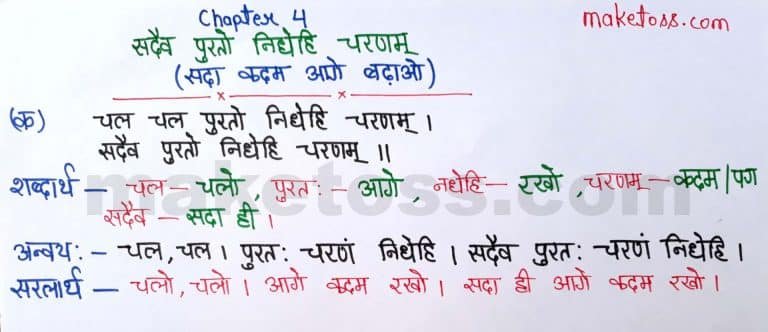 Chapter 4
maketoss.com
सदैव पुरतो निधेहि चरणम्
(सदा कदम आगे बढ़ाओ)
(क) चल चल पुरतो निधेहि चरणम् ।
सदैव पुरतो निधेहि चरणम् ॥
शब्दार्थ – चल – चलो, पुरतः – आगे, नधेहि – रखो, चरणम् – कदम/पग
सदैव – सदा ही ।
अन्वयः – चल, चल । पुरतः चरणं निधेहि । सदैव पुरतः चरणं निधेहि ।
सरलार्थ – चलो, चलो । आगे कदम रखो । सदा ही आगे कदम रखो ।
maketoss.com